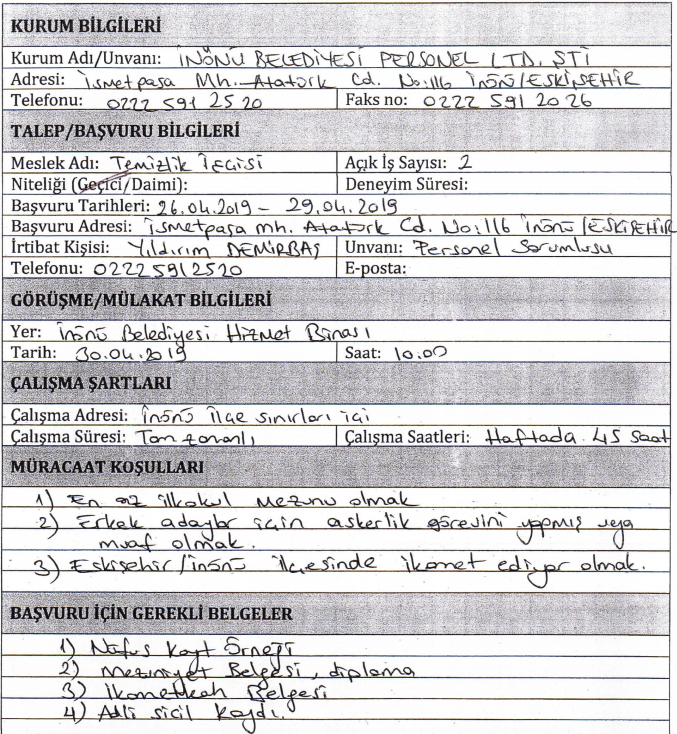 KURUM BİLGİLERİ
Kurum Adı/Unvanı: İNÖNÜ BELEDİYESİ PERSONEL LTD. ŞTİ
Adresi: İsmetpaşa Mh. Atatürk Cd. No:116 İnönü/ESKİŞEHİR
Telefonu: 0222 591 25 20 Faks no: 0222 591 20 26
TALEP/BAŞVURU BİLGİLERİ
Meslek Adı: Temizlik İşçisi Açık İş Sayısı: 2
Niteliği (Geçici/Daimi): Deneyim Süresi:
Başvuru Tarihleri: 26.04.2019 - 29.04.2019
Başvuru Adresi: İsmetpaşa mh. Atatürk Cd. No:116 İnönü/ESKİŞEHİR
İrtibat Kişisi: Yıldırım DEMİRBAŞ Unvanı: Personel Sorumlusu
Telefonu: 0222 591 2520 E-posta:
GÖRÜŞME/MÜLAKAT BİLGİLERİ
Yer: İnönü Belediyesi Hizmet Binası
Tarih: 30.04.2019 Saat: 10.00
ÇALIŞMA ŞARTLARI
Çalışma Adresi: İnönü İlçe sınırları içi
Çalışma Süresi: Tam zamanlı Çalışma Saatleri: Haftada 45 Saat
MÜRACAAT KOŞULLARI
1) En az ilkokul mezunu olmak
2) Erkek adaylar için askerlik görevini yapmış veya
muaf olmak.
3) Eskişehir/İnönü ilçesinde ikamet ediyor olmak.
BAŞVURU İÇİN GEREKLİ BELGELER
1) Nüfus Kayıt Örneği
2) Mezuniyet Belgesi, diploma
3) İkametkah Belgesi
4) Adli sicil kaydı.